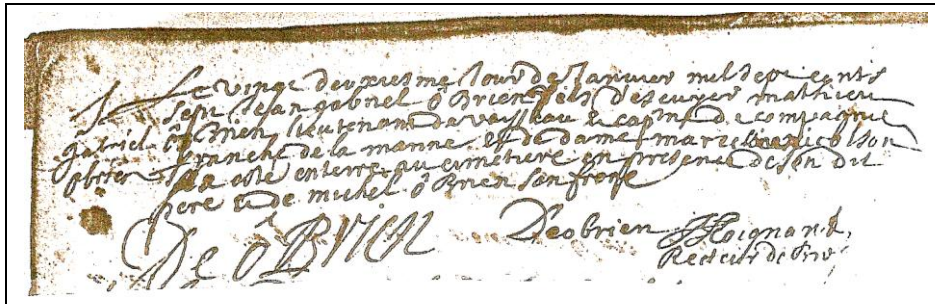 Le vingt deuxiesme Jour de Janvier mil sept cents
J. sept Jean gabriel ô Brien fils d'escuyer mathieu
gabriel ô Brien lieutenant de vaisseau & capne de compagnie
obrien franche de la marine et de dame marie nicolson
a esté enterré au cimetiere en presence de son dit
pere & de michel ô Brien son frere
De ô Brien Deobrien
Recteur de